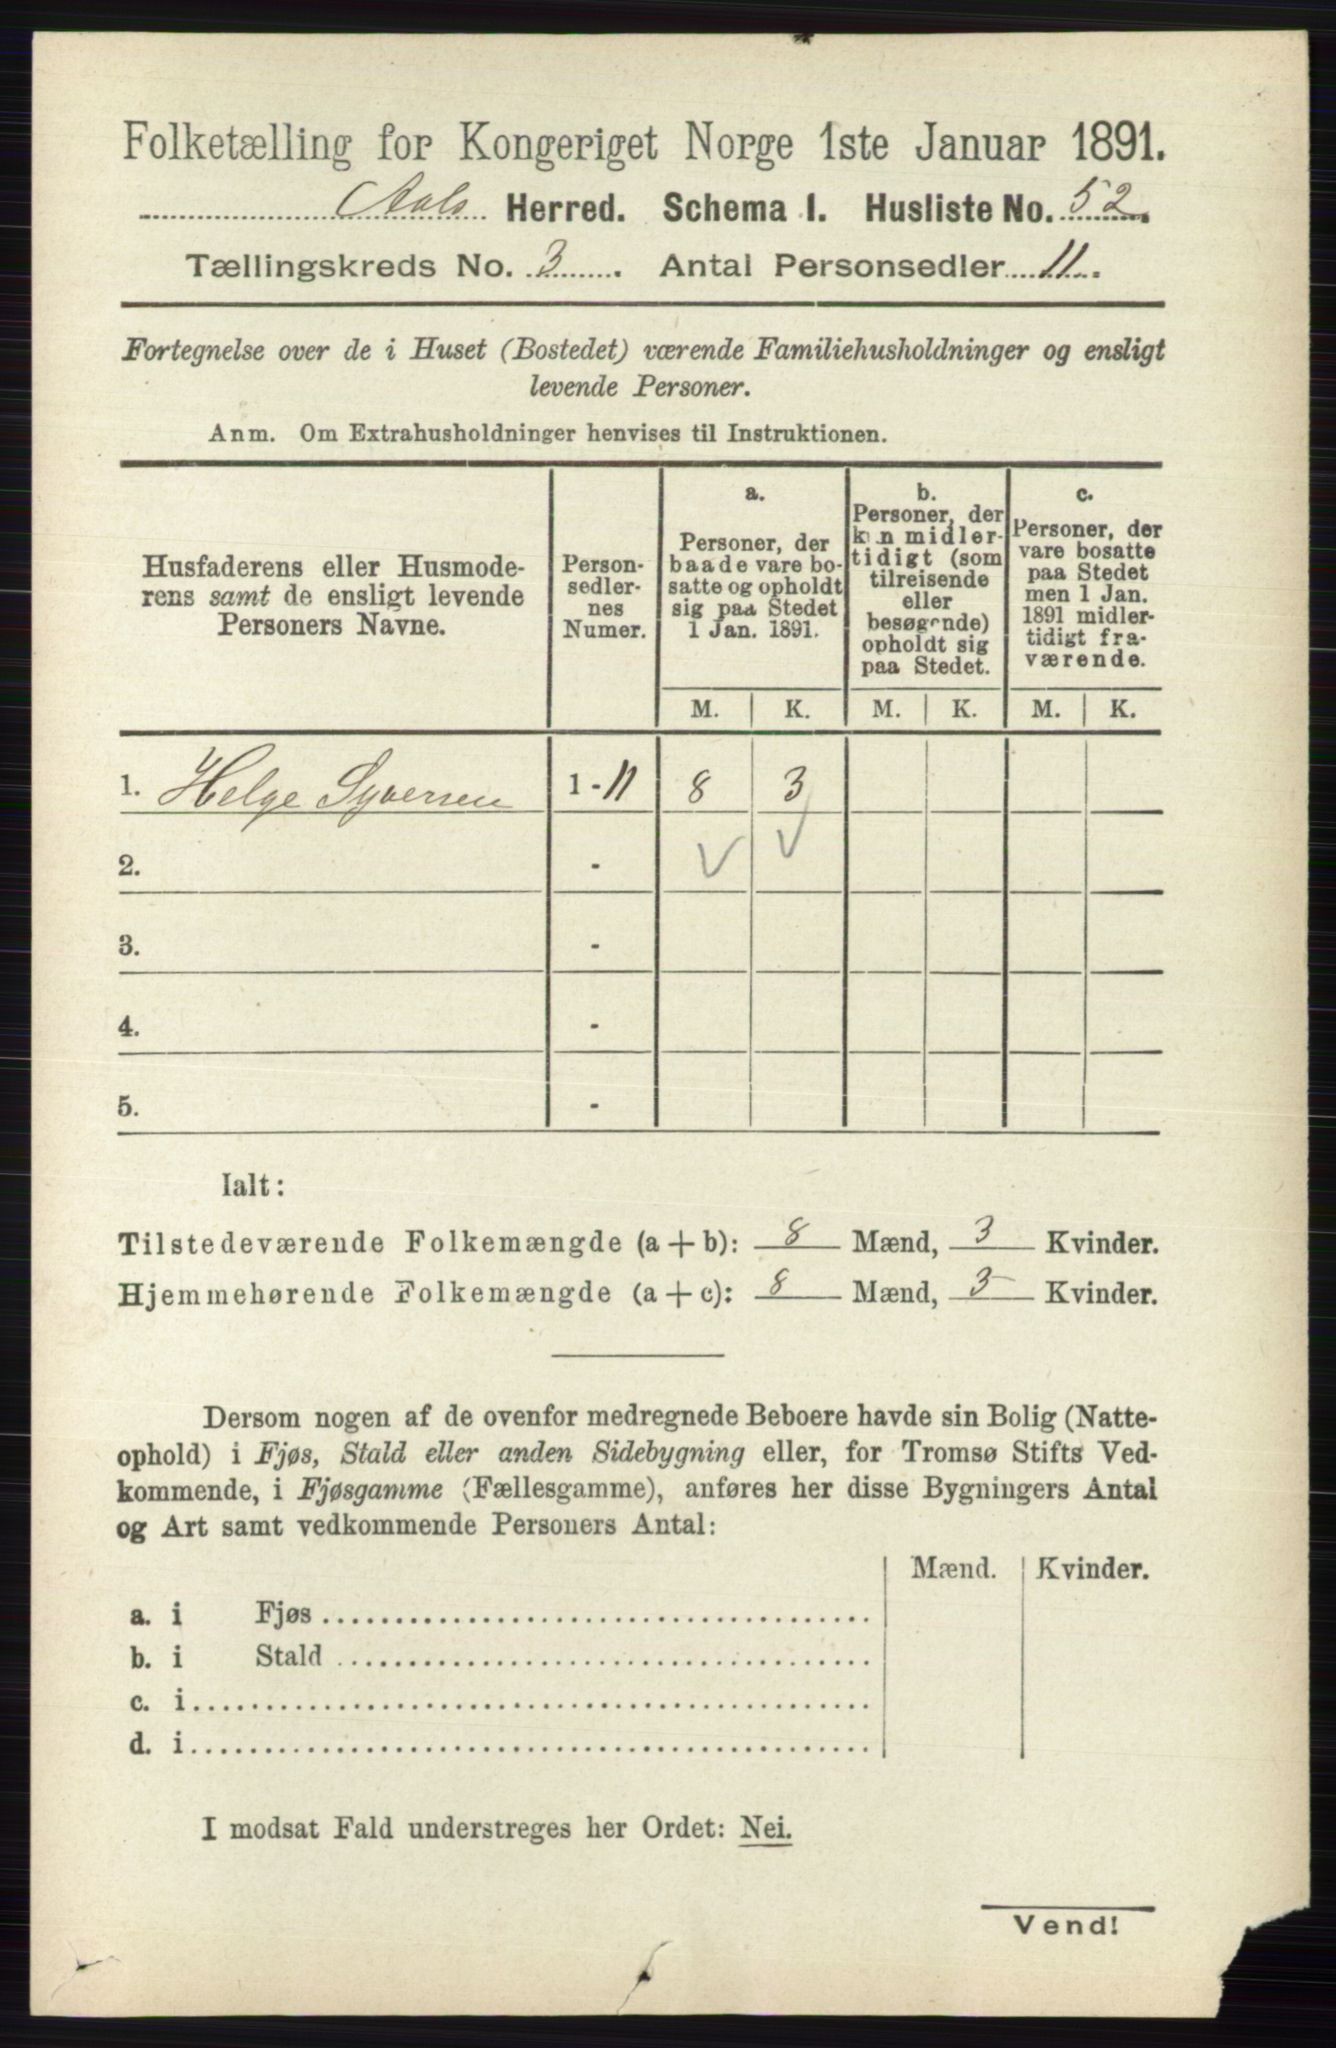 Folketælling for Kongeriget Norge 1ste Januar 1891.
Aals Herred. Schema I. Husliste No. 52.
Tællingskreds No. 3. Antal Personsedler 11.
Fortegnelse over de i Huset (Bostedet) værende Familiehusholdninger og ensligt
levende Personer.
Anm. Om Extrahusholdninger henvises til Instruktionen.
Husfaderens eller Husmode-
rens samt de ensligt levende
Personers Navne.
Person-
sedler-
nes
Numer.
a.
Personer, der
baade vare bo-
satte og opholdt
sig paa Stedet
1 Jan. 1891.
b.
Personer, der
kun midler-
tidigt (som
tilreisende
eller
besøgende)
opholdt sig
paa Stedet.
c.
Personer, der
vare bosatte
paa Stedet
men 1 Jan.
1891 midler-
tidigt fra-
værende.
M. K. M. K. M. K.
1. Helge Syversen 1 - 11 8 3
2. -
3. -
4. -
5. -
Ialt:
Tilstedeværende Folkemængde (a + b): 8 Mænd, 3 Kvinder.
Hjemmehørende Folkemængde (a + c): 8 Mænd, 3 Kvinder.
Dersom nogen af de ovenfor medregnede Beboere havde sin Bolig (Natte-
ophold) i Fjøs, Stald eller anden Sidebygning eller, for Tromsø Stifts Ved-
kommende, i Fjøsgamme (Fællesgamme), anføres her disse Bygningers Antal
og Art samt vedkommende Personers Antal:
Mænd. Kvinder.
a. i Fjøs
b. i Stald
c. i
d. i
I modsat Fald understreges her Ordet: Nei.
Vend!